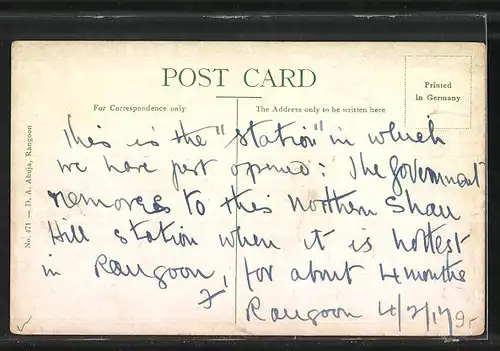 POST CARD
For Correspondence only
The Address only to be written here
Printed
in Germany
No. 471 — D. A. Ahuja, Rangoon
This is the "station" in which
we have just opened: The Government
removes to this northern Shan
Hill station when it is hottest
in Rangoon, for about 4 months
Rangoon 4/2/19